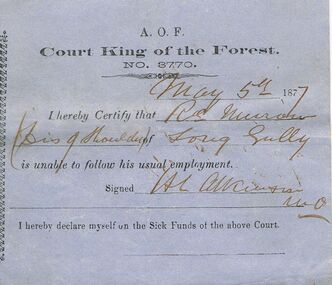 A. O. F.
Court King of the Forest.
NO. 3770.
May 5th 1877
I hereby Certify that Rd
of Long Gully
is unable to follow his usual employment.
Signed H L Atkinson
M O
I hereby declare myself on the Sick Funds of the above Court.